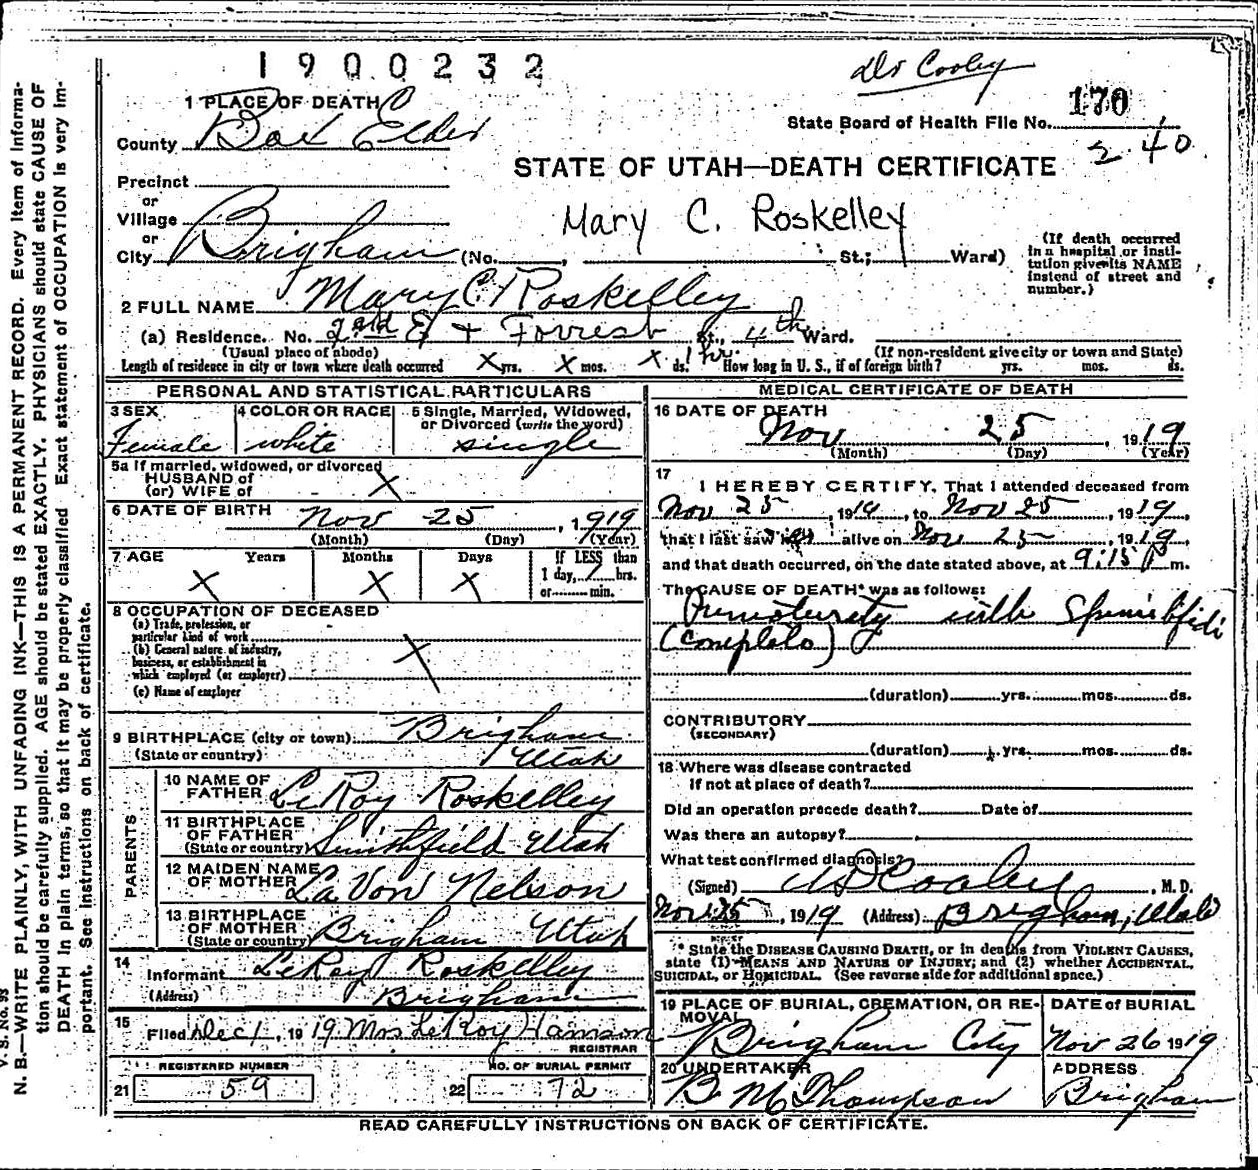 1900232
Dr Cooley
1 PLACE OF DEATH
170
County Box Elder
State Board of Health File No.
240
STATE OF UTAH—DEATH CERTIFICATE
Precinct
or
Village
Mary C. Roskelley
or
City Brigham (No. , St.; Ward)
(If death occurred in a hospital or institution give its NAME instead of street and number.)
2 FULL NAME Mary C. Roskelley
(a) Residence. No. 2nd E + Forrest St., 4th Ward.
(Usual place of abode) (If non-resident give city or town and State)
Length of residence in city or town where death occurred X yrs. X mos. X ds. How long in U. S., if of foreign birth? yrs. mos. ds.
PERSONAL AND STATISTICAL PARTICULARS
3 SEX 4 COLOR OR RACE 5 Single, Married, Widowed, or Divorced (write the word)
Female white single
5a If married, widowed, or divorced
HUSBAND of
(or) WIFE of X
6 DATE OF BIRTH Nov 25, 1919
(Month) (Day) (Year)
7 AGE Years Months Days If LESS than
X X X 1 day, 7 hrs.
or min.
8 OCCUPATION OF DECEASED
(a) Trade, profession, or
particular kind of work
(b) General nature of industry,
business, or establishment in
which employed (or employer) X
(c) Name of employer
9 BIRTHPLACE (city or town) Brigham
(State or country) Utah
PARENTS
10 NAME OF FATHER LeRoy Roskelley
11 BIRTHPLACE OF FATHER (State or country) Smithfield Utah
12 MAIDEN NAME OF MOTHER La Von Nelson
13 BIRTHPLACE OF MOTHER (State or country) Brigham Utah
14 Informant LeRoy Roskelley
(Address) Brigham
15 Filed Dec 1, 1919 Mrs LeRoy Hanson
REGISTRAR
REGISTERED NUMBER NO. OF BURIAL PERMIT
21 59 22 72
MEDICAL CERTIFICATE OF DEATH
16 DATE OF DEATH
Nov 25, 1919
(Month) (Day) (Year)
17
I HEREBY CERTIFY, That I attended deceased from
Nov 25, 1919, to Nov 25, 1919,
that I last saw her alive on Nov 25, 1919,
and that death occurred, on the date stated above, at 9:15 P m.
The CAUSE OF DEATH* was as follows:
Prematurity with Spinabifida
(complete)
(duration) yrs. mos. ds.
CONTRIBUTORY
(SECONDARY)
(duration) yrs. mos. ds.
18 Where was disease contracted
If not at place of death?
Did an operation precede death? Date of
Was there an autopsy?
What test confirmed diagnosis?
(Signed) Cooley, M. D.
Nov 25, 1919 (Address) Brigham, Utah
* State the DISEASE CAUSING DEATH, or in deaths from VIOLENT CAUSES,
state (1) MEANS AND NATURE OF INJURY; and (2) whether ACCIDENTAL,
SUICIDAL, or HOMICIDAL. (See reverse side for additional space.)
19 PLACE OF BURIAL, CREMATION, OR REMOVAL DATE of BURIAL
Brigham City Nov 26 1919
20 UNDERTAKER ADDRESS
B M Thompson Brigham
READ CAREFULLY INSTRUCTIONS ON BACK OF CERTIFICATE.
V. S. No. 93
N. B.—WRITE PLAINLY, WITH UNFADING INK—THIS IS A PERMANENT RECORD. Every item of informa-
tion should be carefully supplied. AGE should be stated EXACTLY. PHYSICIANS should state CAUSE OF
DEATH in plain terms, so that it may be properly classified. Exact statement of OCCUPATION is very im-
portant. See instructions on back of certificate.